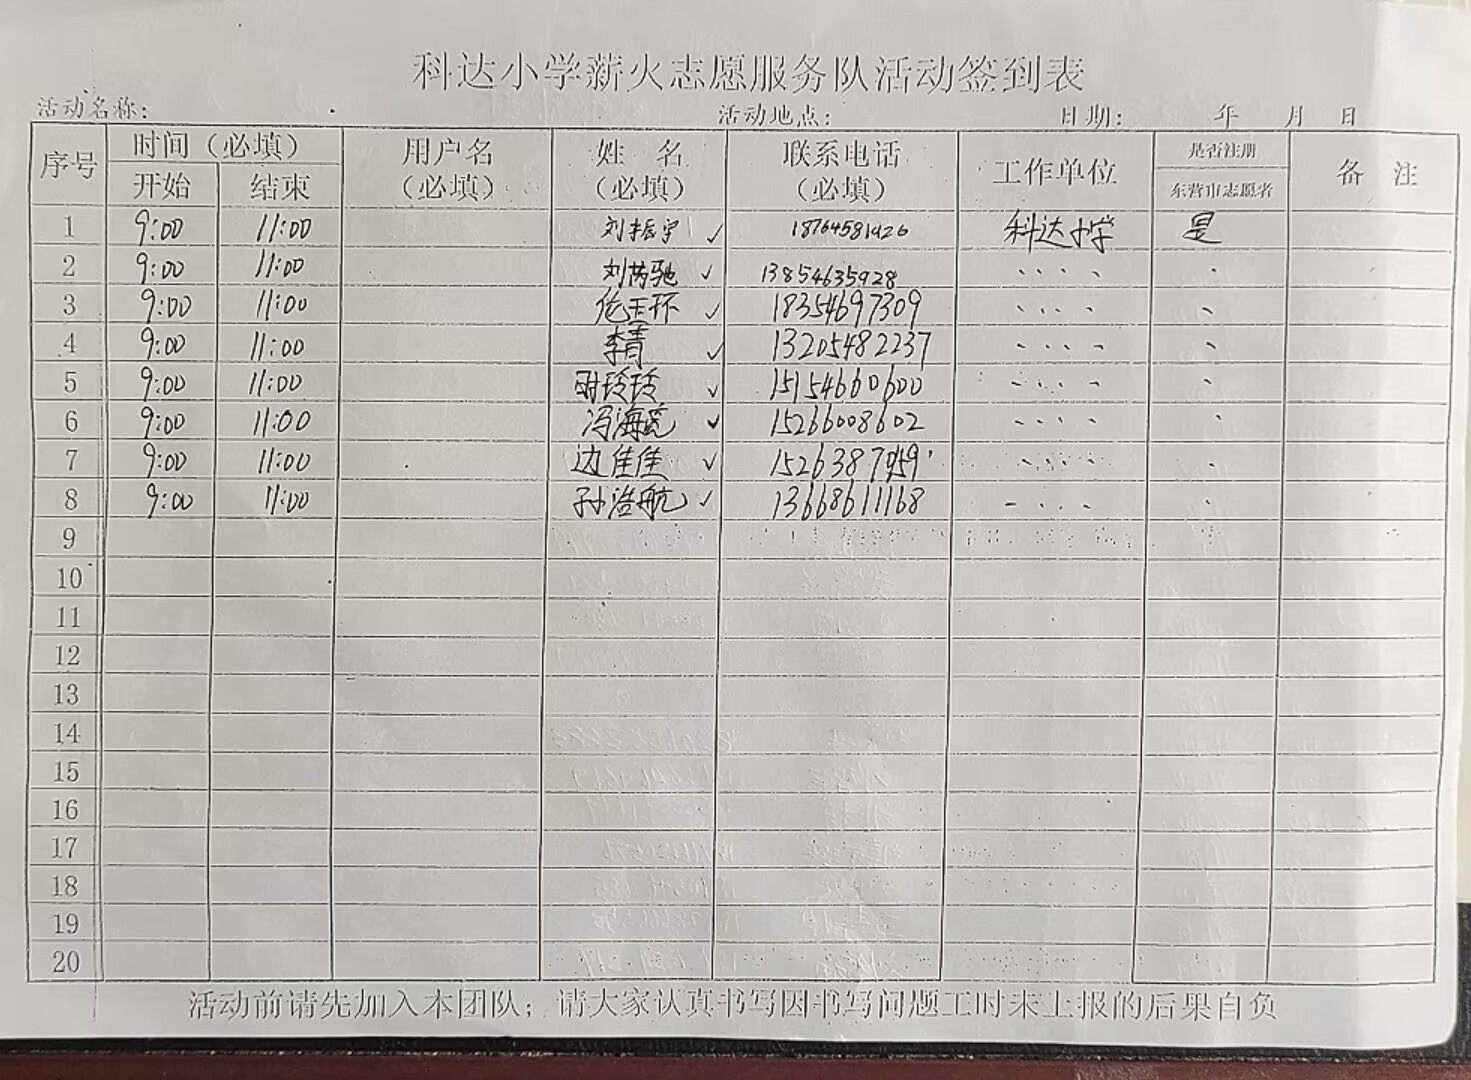 科达小学薪火志愿服务队活动签到表
活动名称： 活动地点： 日期： 年 月 日
序号 时间（必填） 用户名（必填） 姓 名（必填） 联系电话（必填） 工作单位 是否注册 备 注
开始 结束 东营市志愿者
1 9:00 11:00 刘振宇 ✓ 科达小学 是
2 9:00 11:00 刘芮驰 ✓ 13854635928
3 9:00 11:00 伦玉环 ✓ 18354697309
4 9:00 11:00 李青 ✓ 13205482237
5 9:00 11:00 玲玲 ✓ 15154660600
6 9:00 11:00 冯海亮 ✓ 15266008602
7 9:00 11:00 边佳佳 ✓
8 9:00 11:00 孙浩航 ✓ 13668611168
9
10
11
12
13
14
15
16
17
18
19
20
活动前请先加入本团队；请大家认真书写因书写问题工时未上报的后果自负